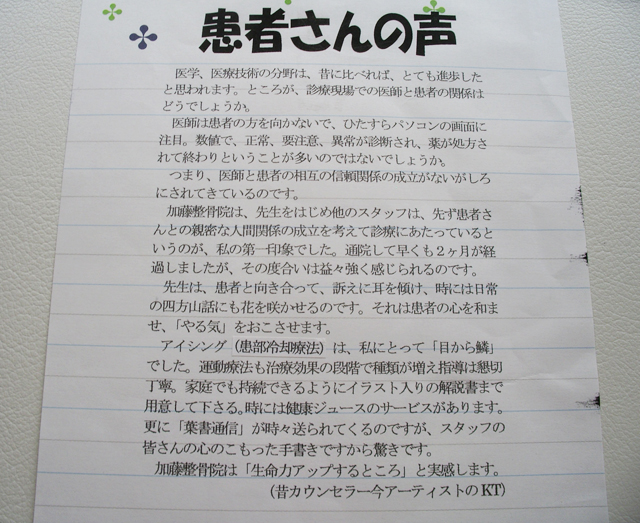 患者さんの声
医学、医療技術の分野は、昔に比べれば、とても進歩した
と思われます。ところが、診療現場での医師と患者の関係は
どうでしょうか。
医師は患者の方を向かないで、ひたすらパソコンの画面に
注目。数値で、正常、要注意、異常が診断され、薬が処方さ
れて終わりということが多いのではないでしょうか。
つまり、医師と患者の相互の信頼関係の成立がないがしろ
にされてきているのです。
加藤整骨院は、先生をはじめ他のスタッフは、先ず患者さ
んとの親密な人間関係の成立を考えて診療にあたっていると
いうのが、私の第一印象でした。通院して早くも２ヶ月が経
過しましたが、その度合いは益々強く感じられるのです。
先生は、患者と向き合って、訴えに耳を傾け、時には日常
の四方山話にも花を咲かせるのです。それは患者の心を和ま
せ、「やる気」をおこさせます。
アイシング（患部冷却療法）は、私にとって「目から鱗」
でした。運動療法も治療効果の段階で種類が増え指導は懇切
丁寧。家庭でも持続できるようにイラスト入りの解説書まで
用意して下さる。時には健康ジュースのサービスがあります。
更に「葉書通信」が時々送られてくるのですが、スタッフの
皆さんの心のこもった手書きですから驚きです。
加藤整骨院は「生命力アップするところ」と実感します。
（昔カウンセラー今アーティストのKT）